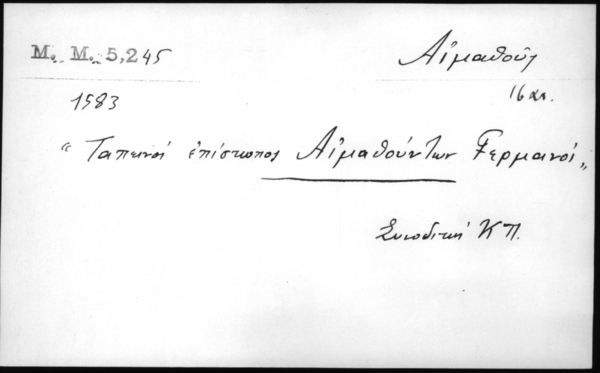 M. M. 5,245
Αἱμαθοῦς
1583
16 αι.
“Ταπεινὸς ἐπίσκοπος Αἱμαθούντων Γερμανός„
Συνοδικὴ ΚΠ.